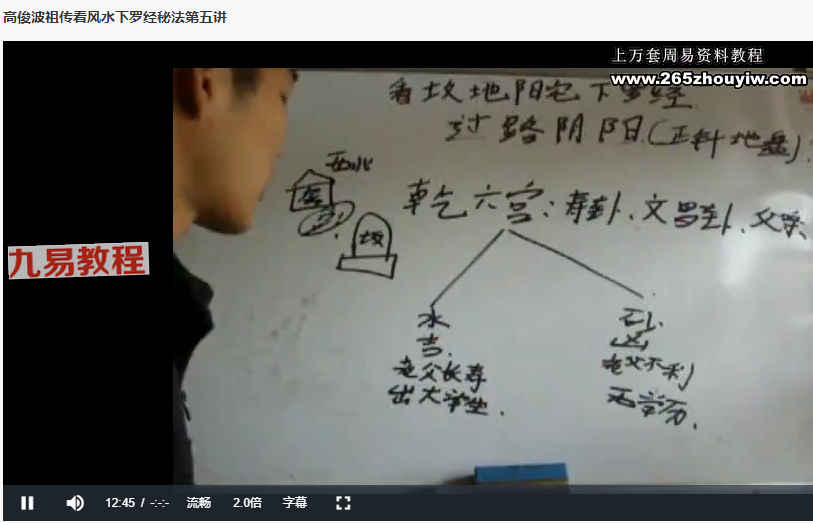 高俊波祖传看风水下罗经秘法第五讲
上万套周易资料教程
www.265zhouyiw.com
看坟地阳宅下罗经
过路阴阳(正针地盘)
西北
乾六宫:寿卦、文昌卦、父亲
坟
九易教程
水
吉
老父长寿
出大学生.
凶
老父不利
无学历.
12:45 / -:-:-
流畅
2.0倍
字幕